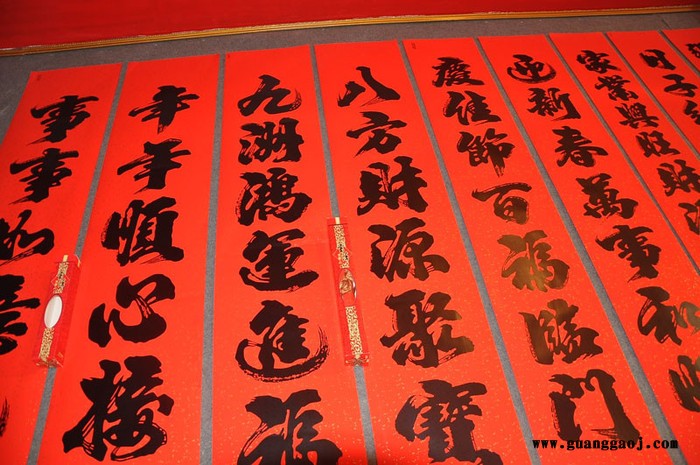 日子
家業興旺財
迎新春萬事和
慶佳節百福臨門
八方財源聚寶
九洲鴻運進福
年年順心接
事事如意
www.guanggaoj.com